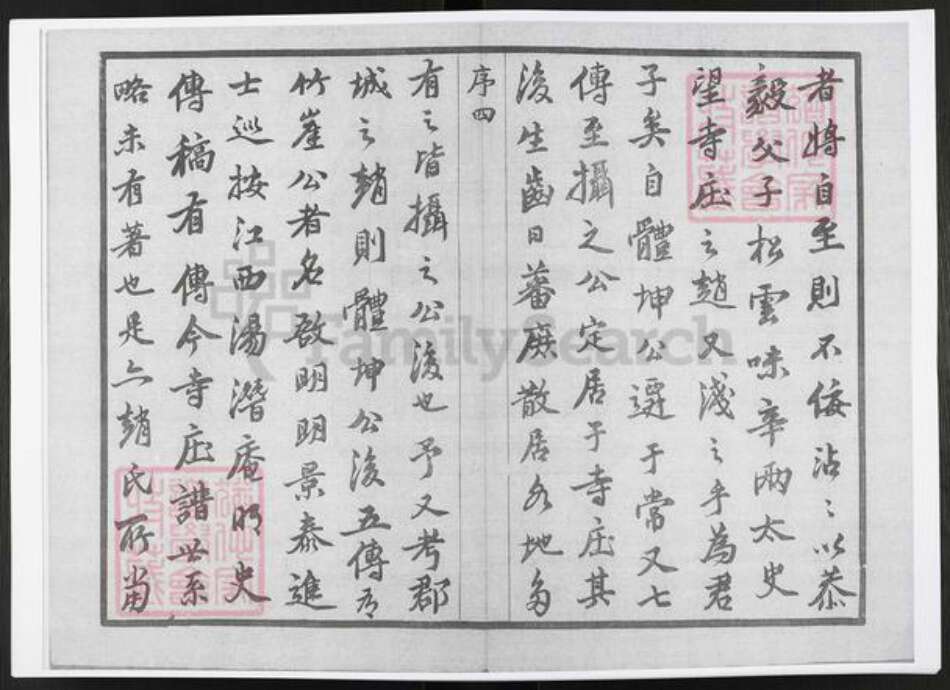 者將自至則不佞沾沾以恭
毅父子松雲味辛兩太史
望寺庄之趙又淺之乎為君
子矣自體坤公遷于常又七
傳至攝之公定居于寺庄其
後生齒日蕃族散居各地多
序四
有之皆攝之公後也予又考郡
城之趙則體坤公後五傳有
竹崖公者名啟明明景泰進
士巡按江西湯潛庵明史
傳稿有傳今寺庄譜世系
略未有著也是亦趙氏所當
FamilySearch